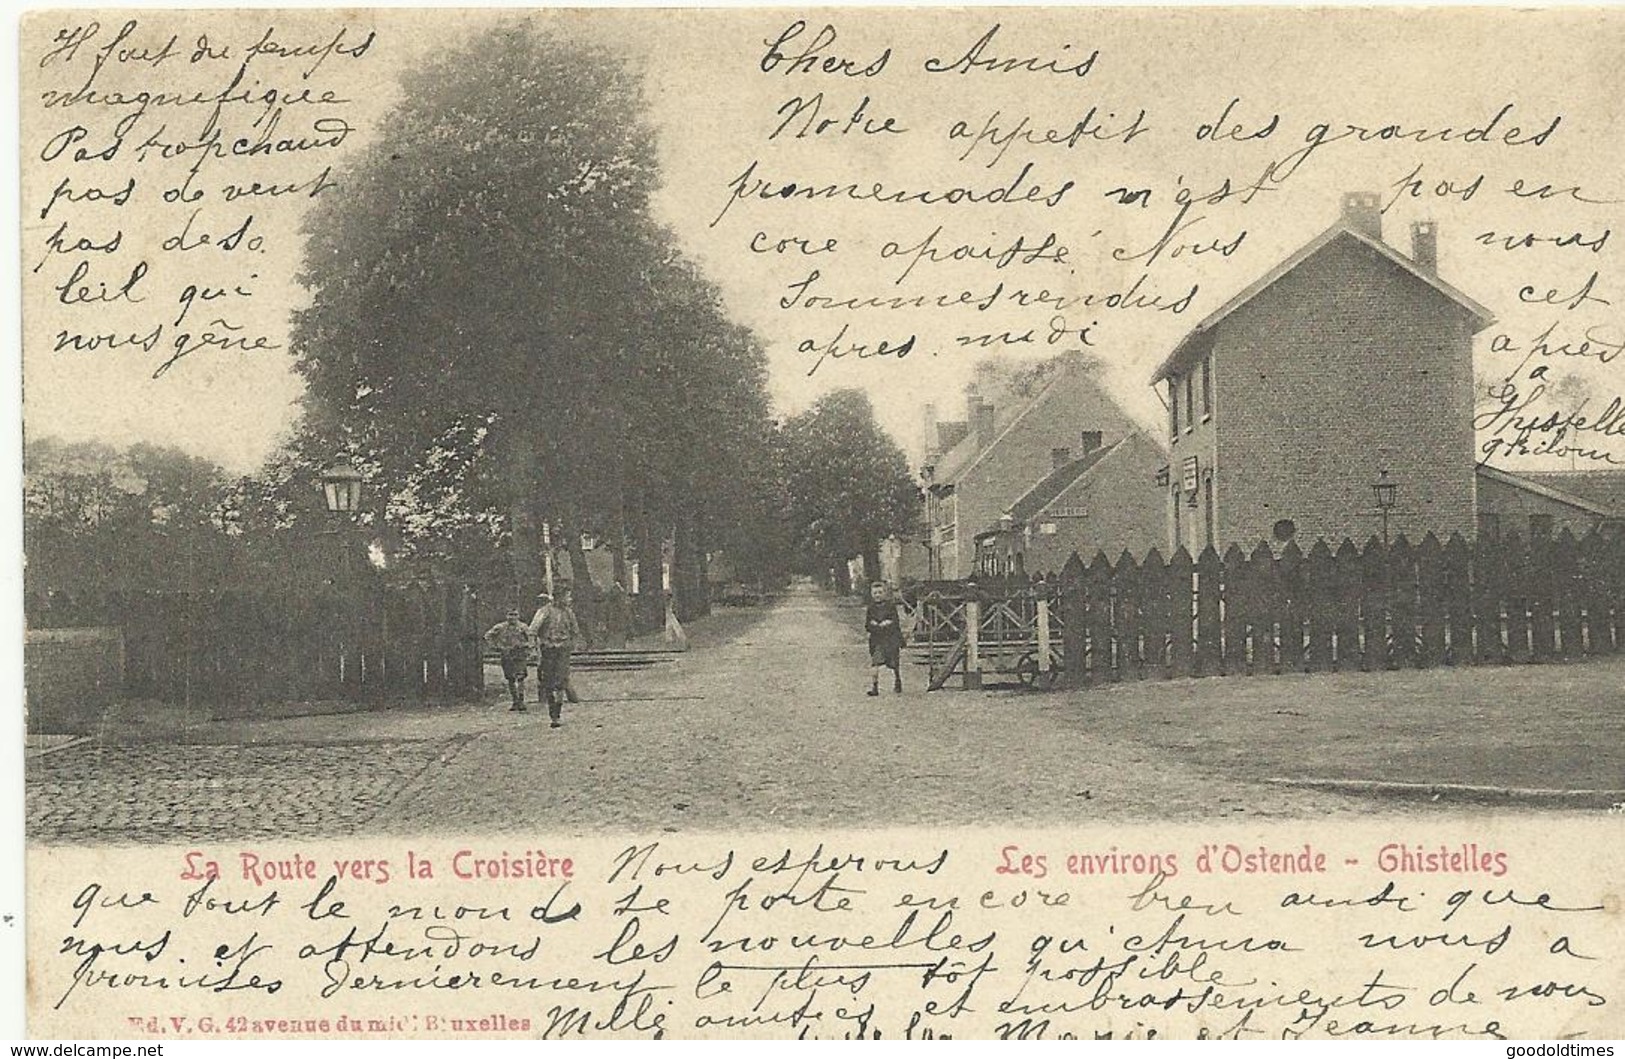 Il fait du temps
magnifique
Pas trop chaud
pas de vent
pas de so
leil qui
nous gêne
Chers Amis
Notre appetit des grandes
promenades n'est pas en
core apaissé. Nous nous
Sommes rendus cet
apres. midi a pied
a
Ghistelle
Nous esperons
La Route vers la Croisière
Les environs d'Ostende - Ghistelles
que tout le monde se porte encore bien ainsi que
nous. et attendons les nouvelles qu'Anna nous a
promises dernierement le plus tôt possible
Ed. V. G. 42 avenue du midi Bruxelles
Mille amities et embrassements de nous
Marie et Jeanne
goodoldtimes